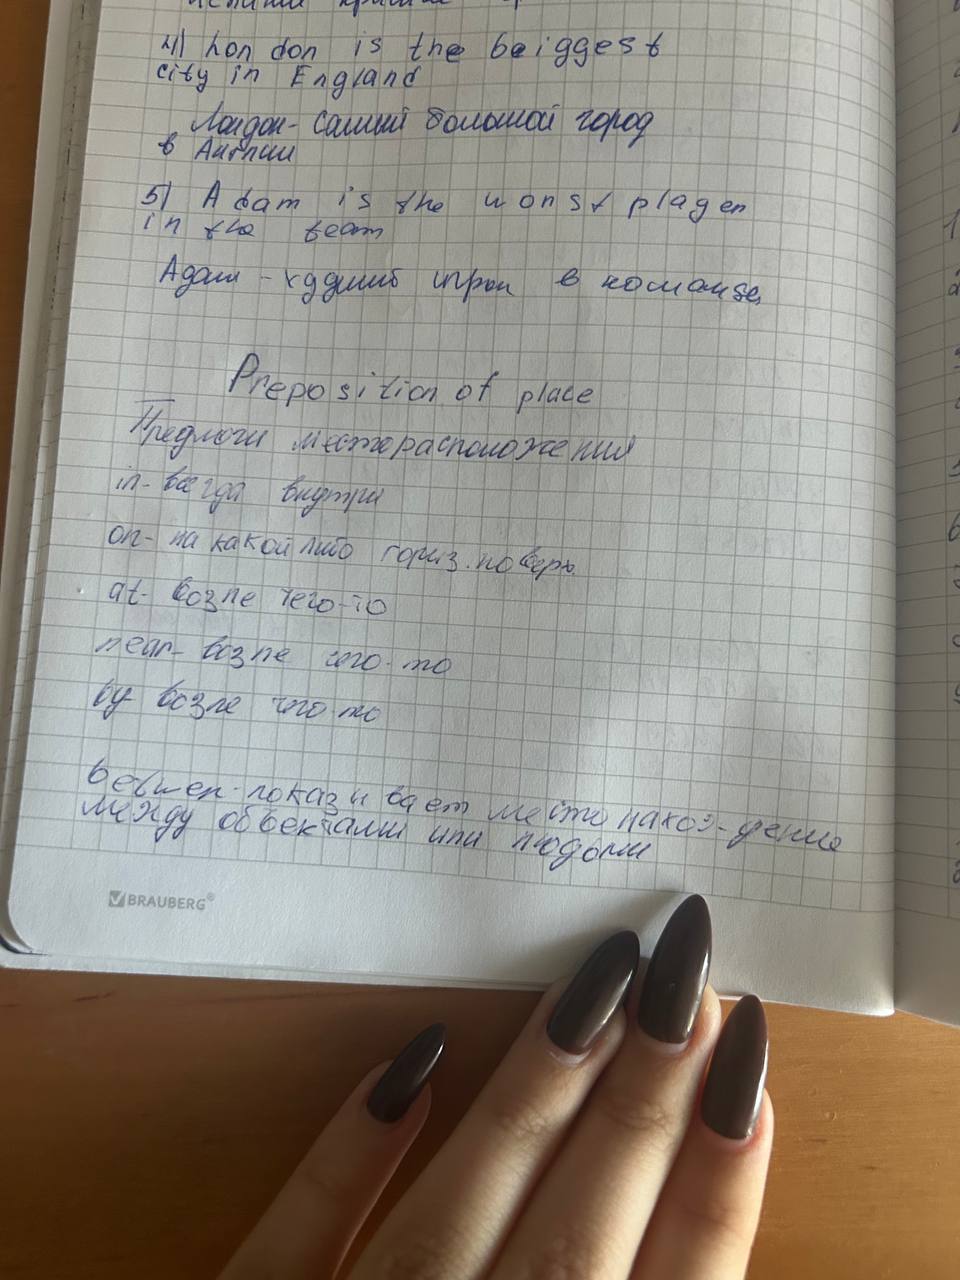 4) London is the beiggest
city in England
Лондон - самый большой город
в Англии
5) Adam is the worst player
in the team
Адам - худший игрок в команде
Preposition of place
Предлоги месторасположения
in - всегда внутри
on - на какой либо гориз. поверь.
at - возле чего-то
near - возле чего-то
by возле чего-то
betwen - показывает местонахож-дение
между объектами или людьми
BRAUBERG®